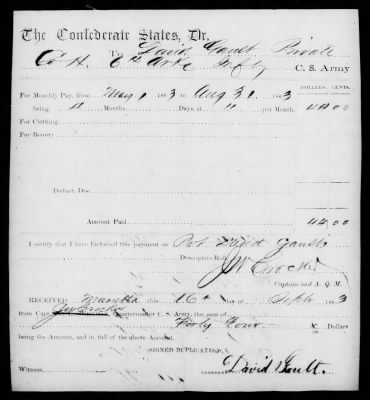 The Confederate States, Dr.
To David Gault Private
Co H. 6th Arks Infty C. S. Army
DOLLARS. CENTS.
For Monthly Pay, from May 1 1863 to Aug 31 1863
being 4 Months Days, at 11 per Month, 44 00
For Clothing,
For Bounty
Deduct, Due
Amount Paid 44 00
I certify that I have Endorsed this payment on Pvt David Gault
Descriptive Roll.
Captain and A. Q. M.
RECEIVED this 16th day of Sept 1863
from Capt. Quartermaster C. S. Army, the sum of
Forty Four Dollars
being the Amount, and in full of the above Account.
(SIGNED DUPLICATES)
Witness, David Gault.